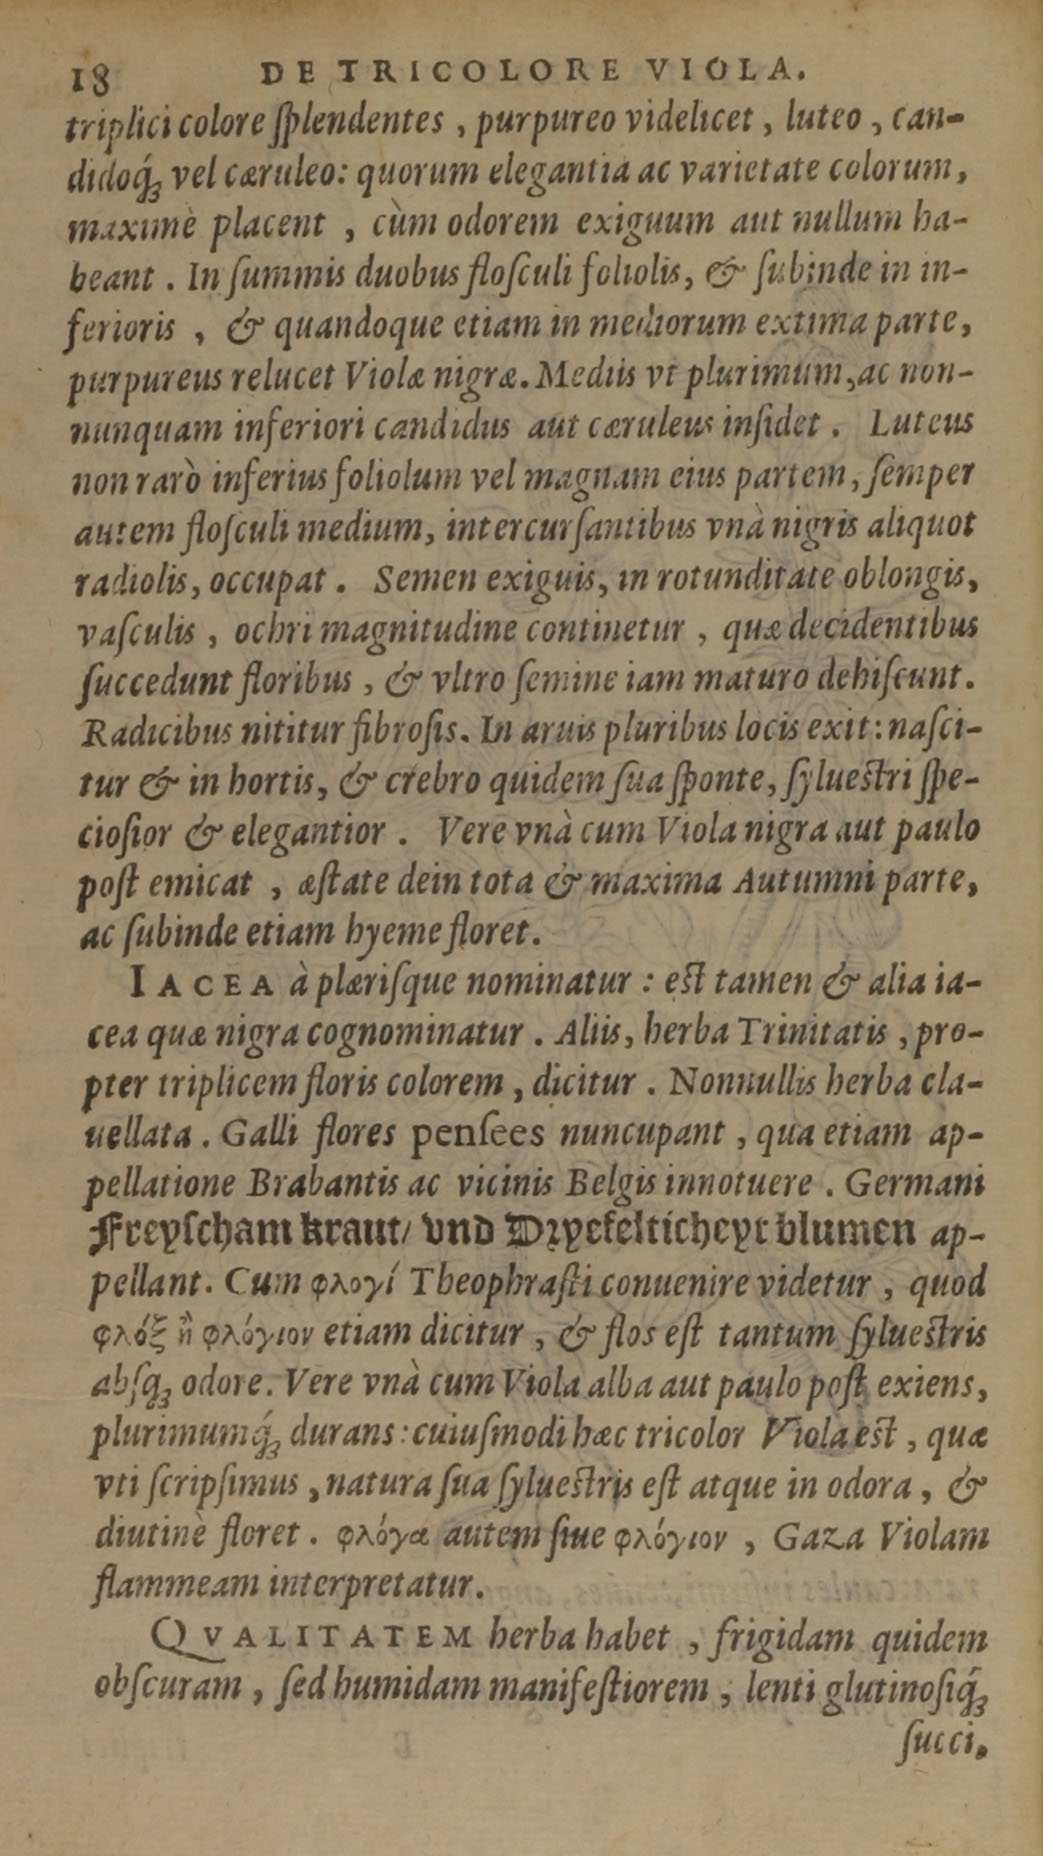 18 DE TRICOLORE VIOLA.
triplici colore ſplendentes, purpureo videlicet, luteo, can-
didoq́ꝫ vel cæruleo: quorum elegantia ac varietate colorum,
maximè placent, cùm odorem exiguum aut nullum ha-
beant. In ſummis duobus floſculi foliolis, & ſubinde in in-
ferioris, & quandoque etiam in mediorum extima parte,
purpureus relucet Violæ nigræ. Mediis vt plurimum, ac non-
nunquam inferiori candidus aut cæruleus inſidet. Luteus
non rarò inferius foliolum vel magnam eius partem, ſemper
autem floſculi medium, intercurſantibus vnà nigris aliquot
radiolis, occupat. Semen exiguis, in rotunditate oblongis,
vaſculis, ochri magnitudine continetur, quæ decidentibus
ſuccedunt floribus, & vltro ſemine iam maturo dehiſcunt.
Radicibus nititur fibroſis. In aruis pluribus locis exit: naſci-
tur & in hortis, & crebro quidem ſua ſponte, ſylueſtri ſpe-
cioſior & elegantior. Vere vnà cum Viola nigra aut paulo
poſt emicat, æſtate dein tota & maxima Autumni parte,
ac ſubinde etiam hyeme floret.
IACEA à plæriſque nominatur: eſt tamen & alia ia-
cea quæ nigra cognominatur. Aliis, herba Trinitatis, pro-
pter triplicem floris colorem, dicitur. Nonnullis herba cla-
uellata. Galli flores penſees nuncupant, qua etiam ap-
pellatione Brabantis ac vicinis Belgis innotuere. Germani
Freyſcham kraut/ vnd Dꝛyefelticheyt blumen ap-
pellant. Cum φλογί Theophraſti conuenire videtur, quod
φλόξ ἢ φλόγιον etiam dicitur, & flos eſt tantum ſylueſtris
abſq́ꝫ odore. Vere vnà cum Viola alba aut paulo poſt exiens,
plurimumq́ꝫ durans: cuiuſmodi hæc tricolor Viola eſt, quæ
vti ſcripſimus, natura ſua ſylueſtris eſt atque in odora, &
diutinè floret. φλόγα autem ſiue φλόγιον, Gaza Violam
flammeam interpretatur.
QVALITATEM herba habet, frigidam quidem
obſcuram, ſed humidam manifeſtiorem, lenti glutinoſiq́ꝫ
ſucci.